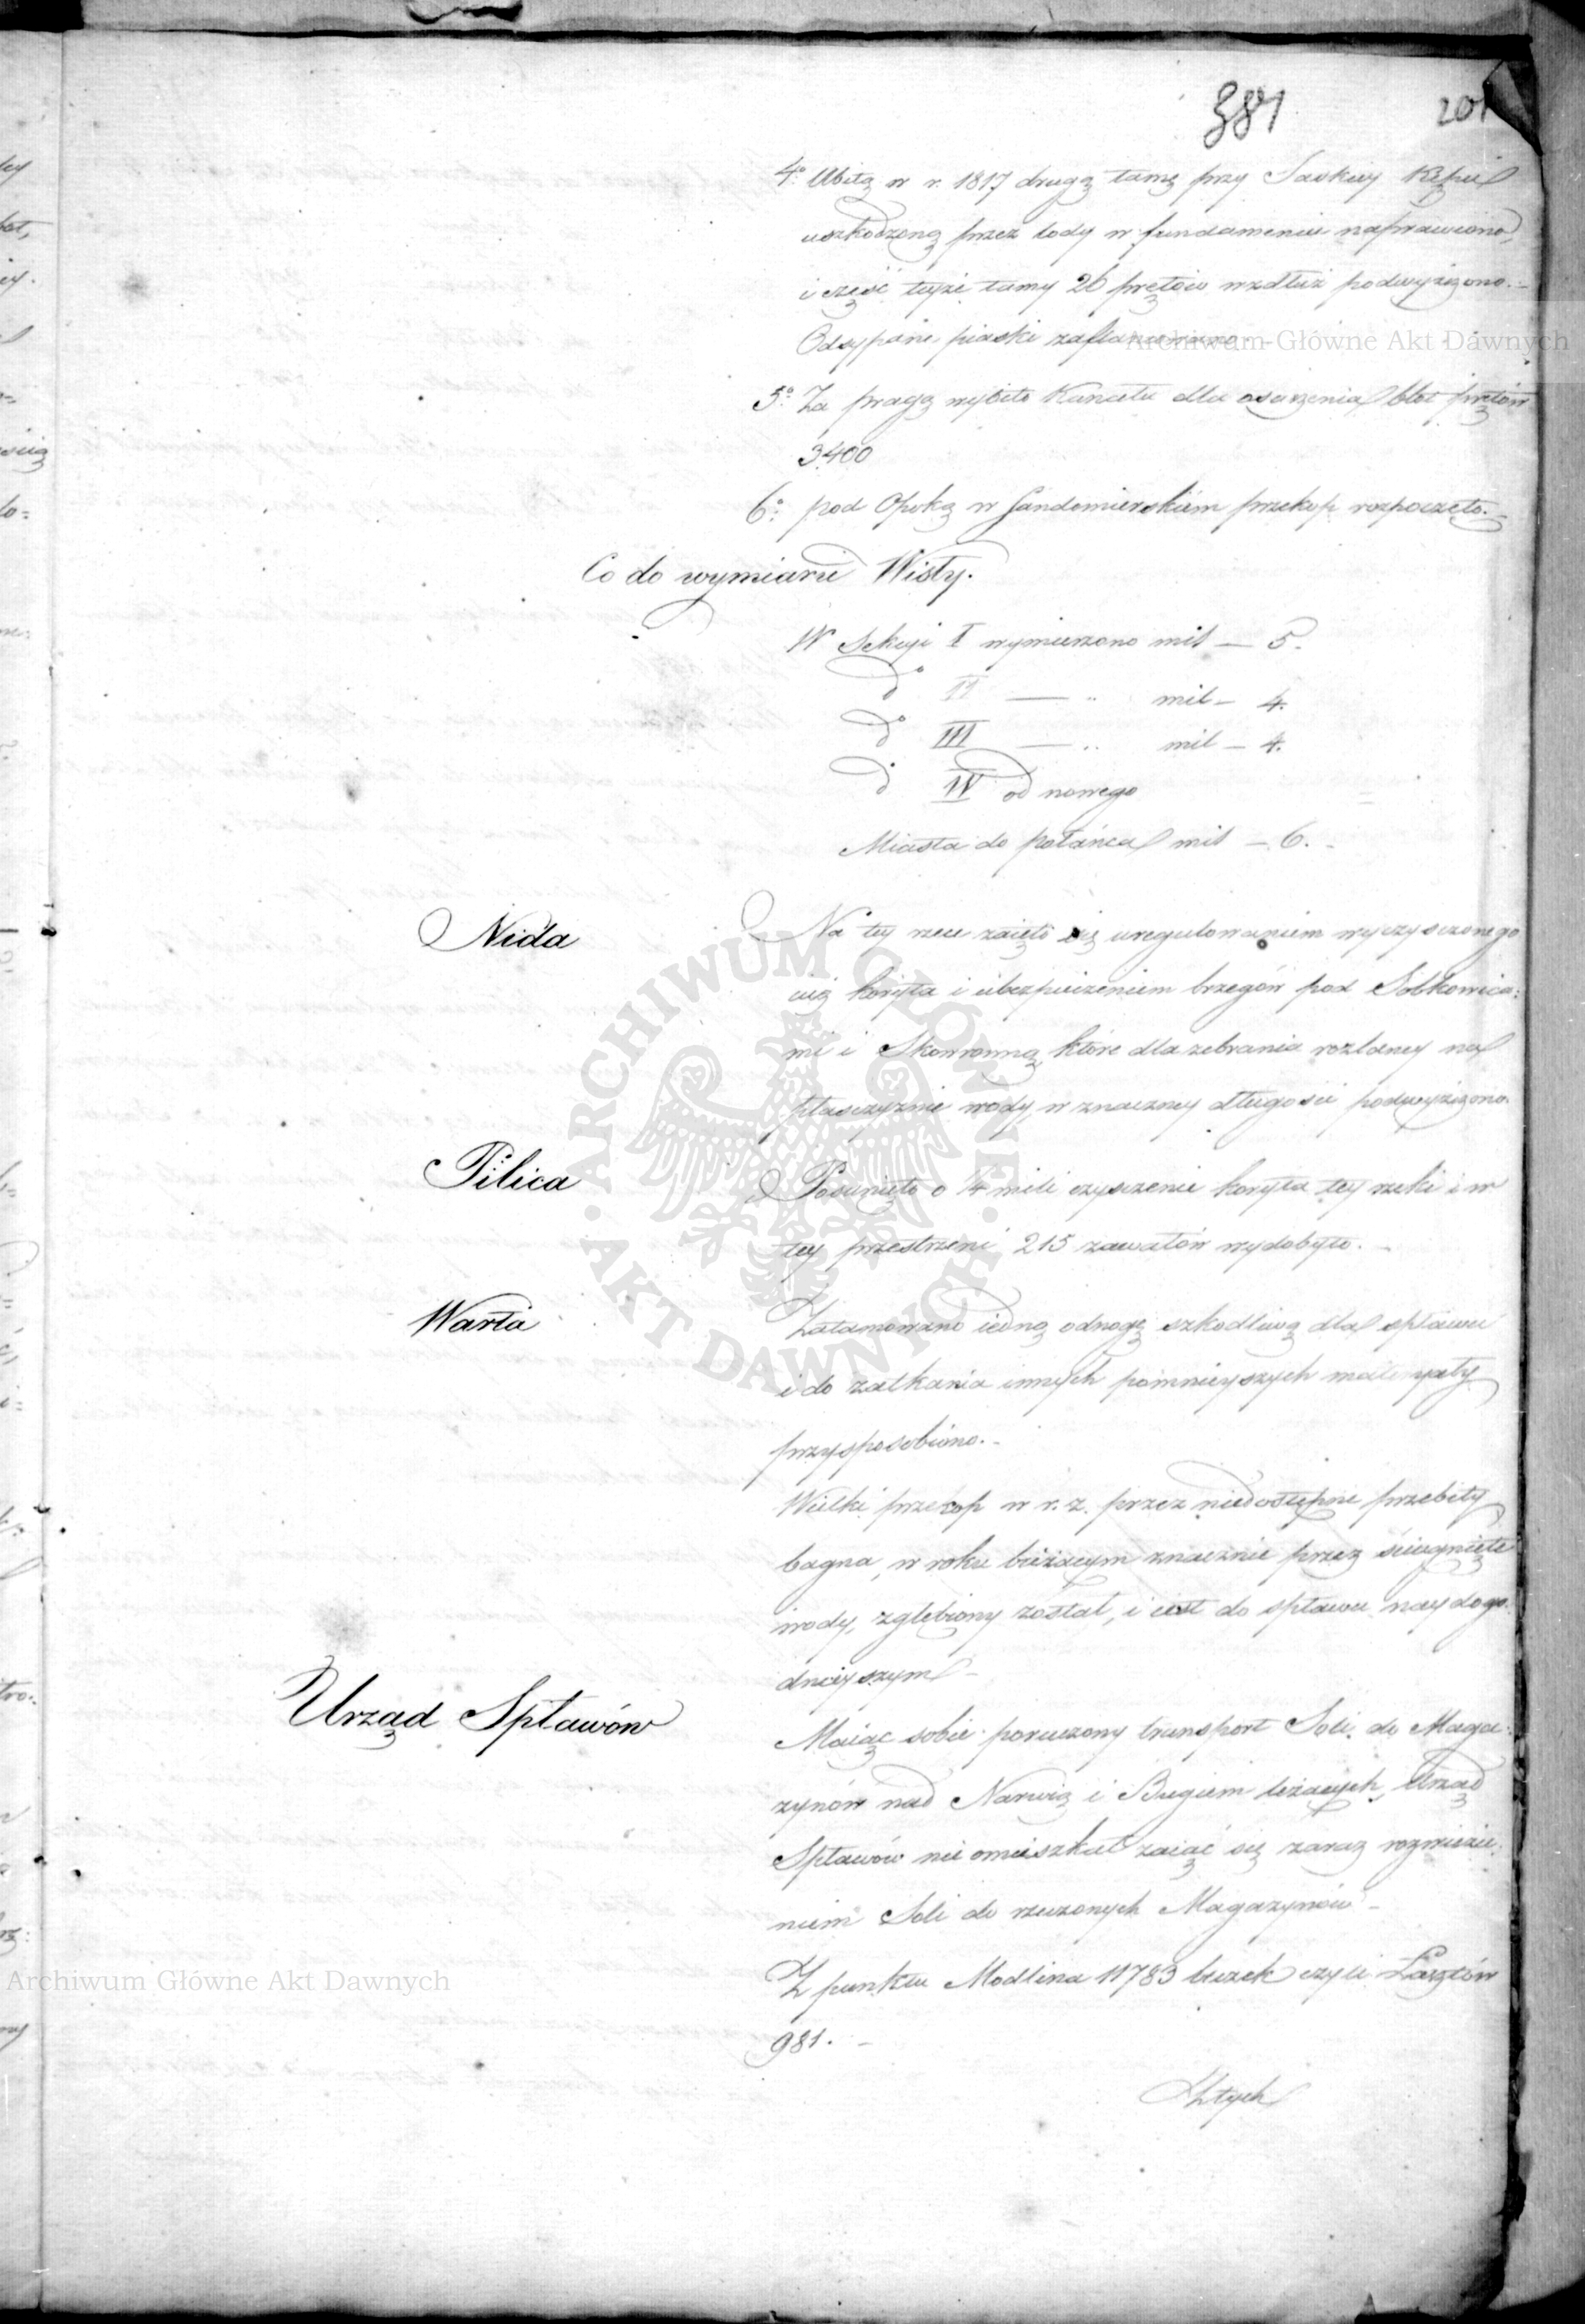 381
201
4º Ubitą w r. 1817 drugą tamę przy Saskiey Kępie
uszkodzoną przez lody w fundamencie naprawiono,
i część teyże tamy 26 prętów wzdłuż podwyższono.
Odsypane piaski zaflancowano.
5º Za pragą wybito kanału dla osuszenia błot prętów
3400
6º pod Opoką w Sandomierskiém przekop rozpoczęto.
Co do wymiaru Wisły.
W Sekcyi I wymierzono mil — 5.
dº II — " mil — 4.
dº III — " mil — 4.
dº IV od nowego
Miasta do połańca mil — 6.
Nida
Na tey rzece zaięto się uregulowaniem wyczysczonego
iuż koryta i ubezpieczeniem brzegów pod Sobkowica:
mi i Skowronną, które dla zebrania rozlaney na
płasczyznie wody, w znaczney długości podwyższono.
Pilica
Posunięto o ¼ mili czysczenie koryta tey rzeki i w
tey przestrzeni 215 zawałów wydobyto. —
Warta
Zatamowano iedną odnogę szkodliwą dla spławu
i do zatkania innych pomnieyszych materyały
przysposobiono. —
Wielki przekop w r. z. przez niedostępne przebity
bagna, w roku bieżącym znacznie przez ściągnięte
wody, zgłębiony został, i iest do spławu naydogo:
dnieyszym —
Urząd Spławów
Maiąc sobie poruczony transport Soli do Maga:
zynów nad Narwią i Bugiem leżących, Urząd
Spławów nie omieszkał zaiąć się zaraz rozwiezie:
niem Soli do rzeczonych Magazynów —
Z punktu Modlina 11783 beczek czyli Łasztów
981. —
Z tych
Archiwum Główne Akt Dawnych
ARCHIWUM GŁÓWNE · AKT DAWNYCH ·
Archiwum Główne Akt Dawnych